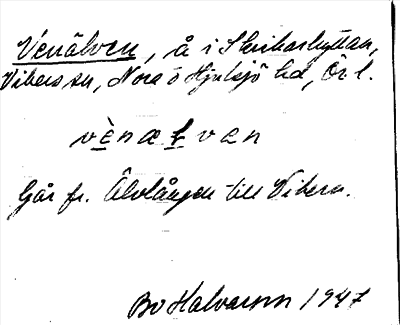 Venälven, å i Skrikarhyttan,
Vikers sn, Nora o Hjulsjö hd, Ör. l.
vènælven
Går fr. Älvlången till Vikern.
Bo Halvarson 1947